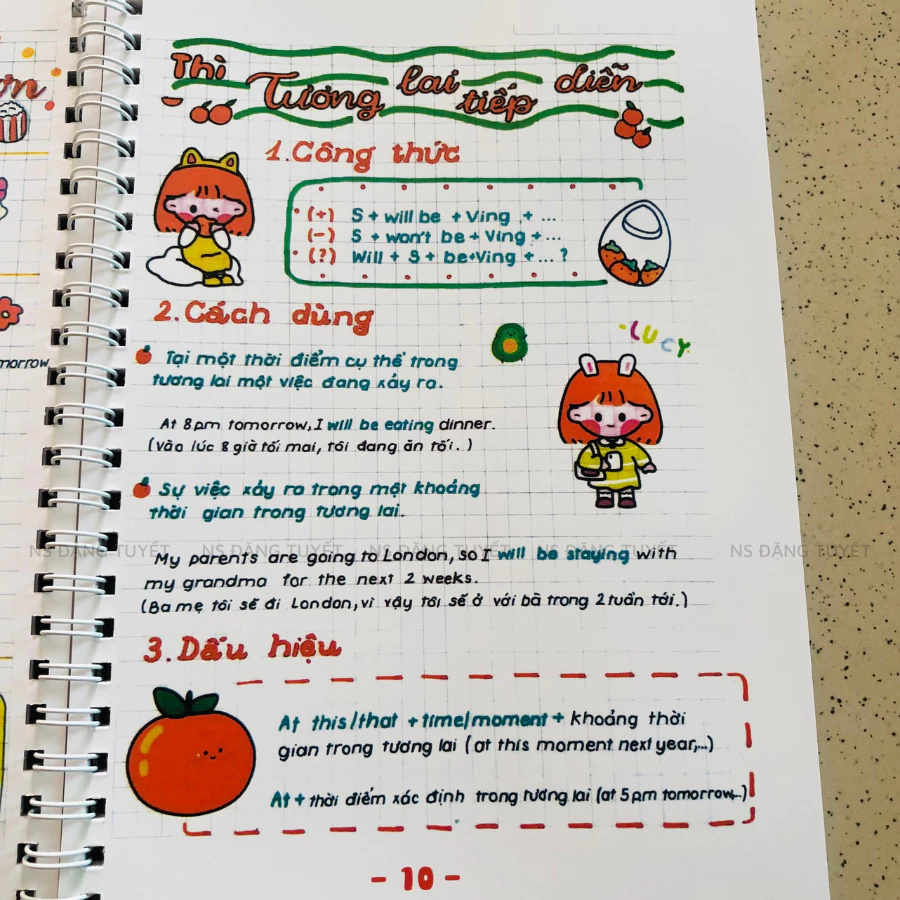 ơn
Thì Tương lai tiếp diễn
1. Công thức
(+) S + will be + Ving + ...
(-) S + won't be + Ving + ...
(?) Will + S + be + Ving + ... ?
2. Cách dùng
-LUCY-
Tại một thời điểm cụ thể trong
tương lai một việc đang xảy ra.
morrow
At 8pm tomorrow, I will be eating dinner.
(Vào lúc 8 giờ tối mai, tôi đang ăn tối.)
Sự việc xảy ra trong một khoảng
thời gian trong tương lai.
NS ĐẶNG TUYẾT NS ĐẶNG TUYẾT NS ĐẶNG TUYẾT NS ĐẶNG TUYẾT
My parents are going to London, so I will be staying with
my grandma for the next 2 weeks.
(Ba mẹ tôi sẽ đi London, vì vậy tôi sẽ ở với bà trong 2 tuần tới.)
3. Dấu hiệu
At this/that + time/moment + khoảng thời
gian trong tương lai (at this moment next year,...)
At + thời điểm xác định trong tương lai (at 5pm tomorrow,..)
- 10 -